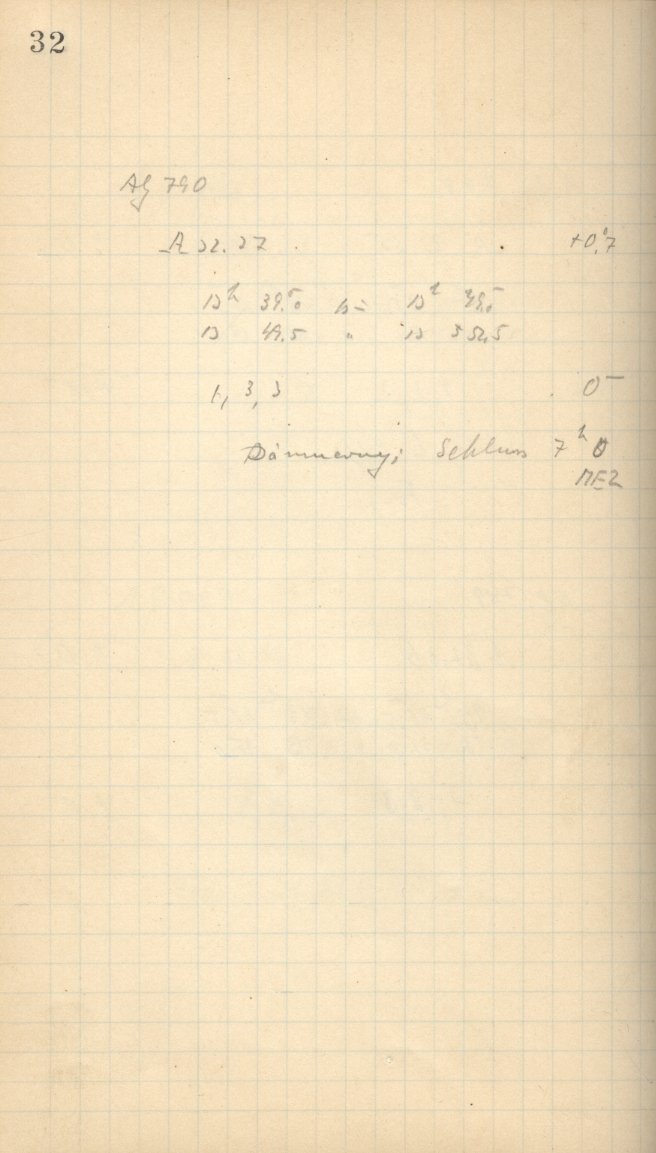 32
Ag 790
A 22.27 +0,°7
13h 39.5 bis 13h 49.5
13 49.5 " 13 52.5
1, 3, 3 0–
Dämmerung; Schluss 7h 0
MEZ